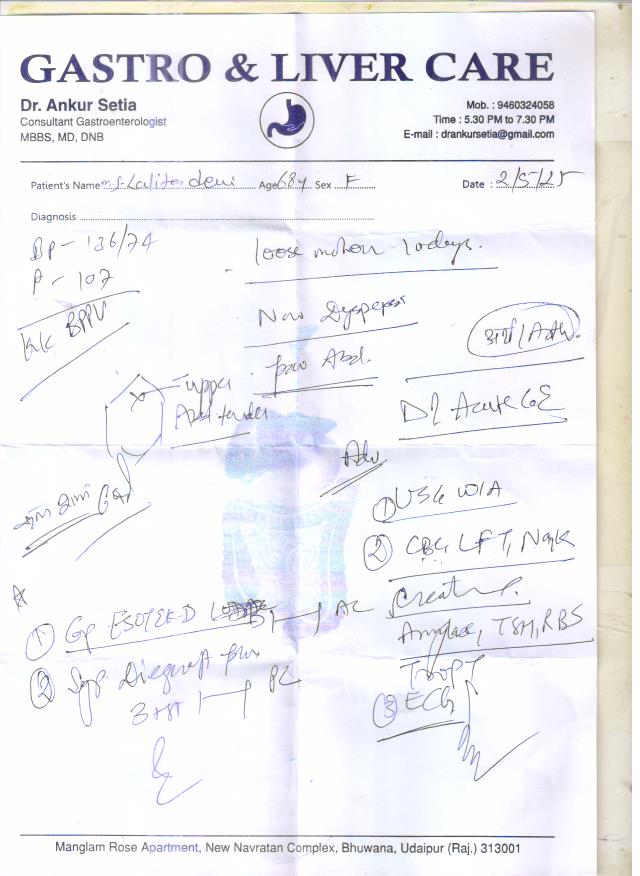 GASTRO & LIVER CARE
Dr. Ankur Setia
Consultant Gastroenterologist
MBBS, MD, DNB
Mob. : 9460324058
Time : 5.30 PM to 7.30 PM
E-mail : drankursetia@gmail.com
Patient's Name Lalita devi Age 68y Sex F Date : 2/5/25
Diagnosis
BP - 136/74
P - 107
K/c BPPV
loose motion 10days.
Now Dyspepsia
pain Abd.
upper
Abd tender
D/ Acute GE
Adv
① USG W/A
② CBC, LFT, Na+/K
Creatine.
Amylase, TSH, RBS
Trop T
③ ECG
① Cap ESOTEK D AC
② Syp Digeraft plus
PC
Manglam Rose Apartment, New Navratan Complex, Bhuwana, Udaipur (Raj.) 313001